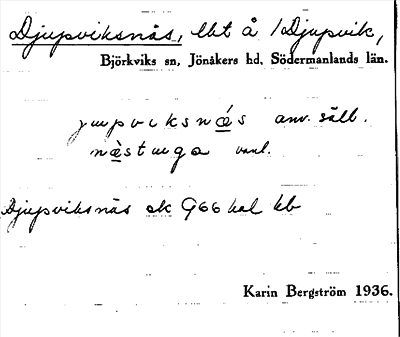 Djupviksnäs, lht å /Djupvik,
Björkviks sn, Jönåkers hd, Södermanlands län.
jupviksnæ̀s anv. säll.
næ̀stuga vanl.
Djupviksnäs ek 966 kal kb
Karin Bergström 1936.